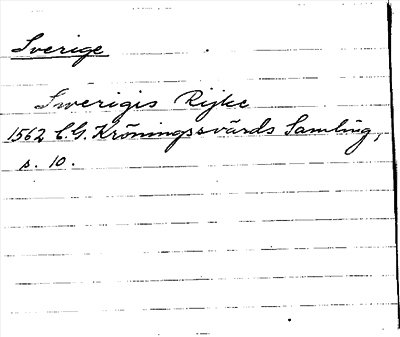 Sverige
Swerigis Rijke
1562 C.G. Kröningssvärds Samling,
s. 10.